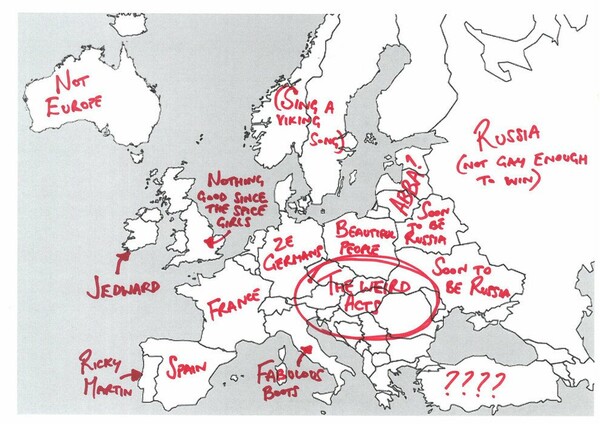 NOT
EUROPE
(SING A
VIKING
SONG)
RUSSIA
(NOT GAY ENOUGH
TO WIN)
ABBA?
NOTHING
GOOD SINCE
THE SPICE
GIRLS
JEDWARD
ZE
GERMANS
BEAUTIFUL
PEOPLE
SOON
TO BE
RUSSIA
SOON TO
BE RUSSIA
THE WEIRD
ACTS
FRANCE
RICKY
MARTIN
SPAIN
FABULOUS
BOOTS
????